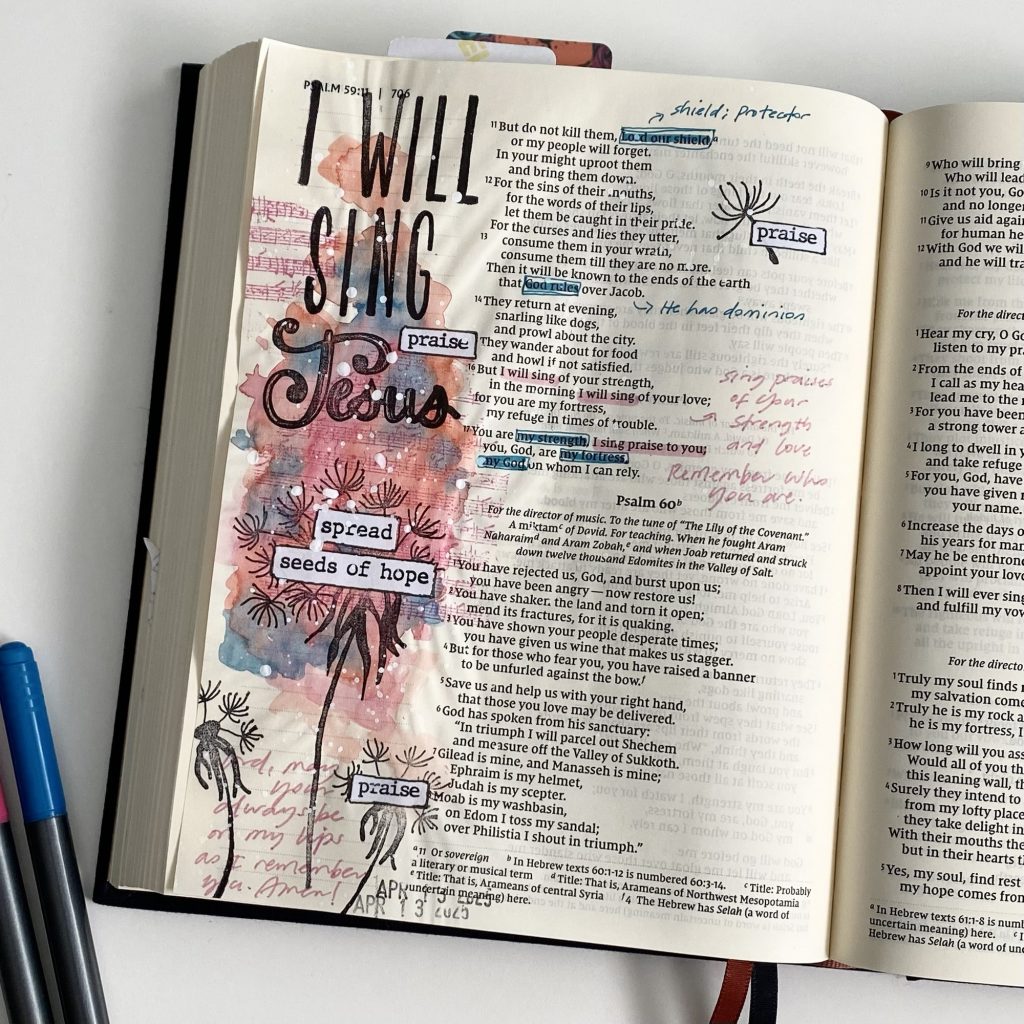 PSALM 59:11 | 706
I WILL
SING
Jesus
praise
spread
seeds of hope
praise
may
your
always be
on my lips
as I remember
you. Amen!
APR 13 2025
APR 13 2025
shield; protector
praise
11 But do not kill them, Lord our shield,a
or my people will forget.
In your might uproot them
and bring them down.
12 For the sins of their mouths,
for the words of their lips,
let them be caught in their pride.
For the curses and lies they utter,
13 consume them in your wrath,
consume them till they are no more.
Then it will be known to the ends of the earth
that God rules over Jacob.
He has dominion
14 They return at evening,
snarling like dogs,
and prowl about the city.
They wander about for food
and howl if not satisfied.
16 But I will sing of your strength,
in the morning I will sing of your love;
for you are my fortress,
my refuge in times of trouble.
sing praises
of your
strength
and love
17 You are my strength, I sing praise to you;
you, God, are my fortress,
my God on whom I can rely.
Remember who
you are.
Psalm 60b
For the director of music. To the tune of “The Lily of the Covenant.”
A miktamc of David. For teaching. When he fought Aram
Naharaimd and Aram Zobah,e and when Joab returned and struck
down twelve thousand Edomites in the Valley of Salt.
1 You have rejected us, God, and burst upon us;
you have been angry — now restore us!
2 You have shaken the land and torn it open;
mend its fractures, for it is quaking.
3 You have shown your people desperate times;
you have given us wine that makes us stagger.
4 But for those who fear you, you have raised a banner
to be unfurled against the bow.f
5 Save us and help us with your right hand,
that those you love may be delivered.
6 God has spoken from his sanctuary:
“In triumph I will parcel out Shechem
and measure off the Valley of Sukkoth.
7 Gilead is mine, and Manasseh is mine;
Ephraim is my helmet,
Judah is my scepter.
8 Moab is my washbasin,
on Edom I toss my sandal;
over Philistia I shout in triumph.”
a 11 Or sovereign b In Hebrew texts 60:1-12 is numbered 60:3-14. c Title: Probably
a literary or musical term d Title: That is, Arameans of Northwest Mesopotamia
e Title: That is, Arameans of central Syria f 4 The Hebrew has Selah (a word of
uncertain meaning) here.
9 Who will bring
Who will lead
10 Is it not you, God
and no longer
11 Give us aid again
for human he
12 With God we wil
and he will tra
For the direct
1 Hear my cry, O G
listen to my pra
2 From the ends of
I call as my hea
lead me to the r
3 For you have been
a strong tower a
4 I long to dwell in y
and take refuge
5 For you, God, have
you have given m
your name.
6 Increase the days o
his years for man
7 May he be enthrone
appoint your love
8 Then I will ever sing
and fulfill my vow
For the directo
1 Truly my soul finds r
my salvation come
2 Truly he is my rock a
he is my fortress, I
3 How long will you ass
Would all of you th
this leaning wall, th
4 Surely they intend to
from my lofty place
they take delight in
With their mouths the
but in their hearts th
5 Yes, my soul, find rest
my hope comes from
a In Hebrew texts 61:1-8 is numb
uncertain meaning) here. c
Hebrew has Selah (a word of unc